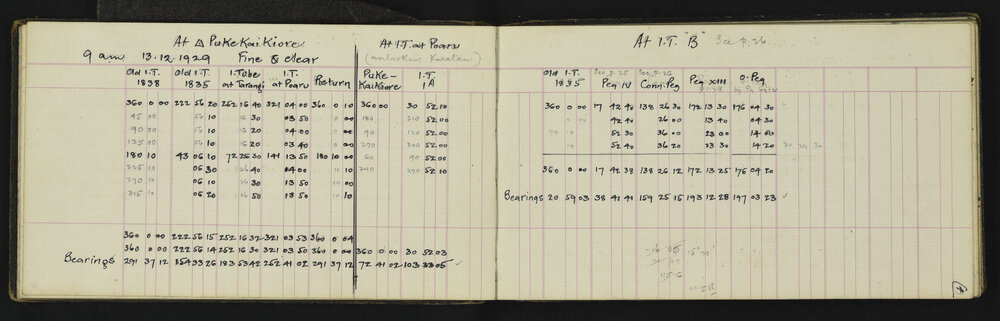 At △ PukeKaiKiore
9 am 13.12.1929 Fine & clear
Old I.T. 1838 Old I.T. 1835 I.Tube at Tarangi I.T. at Poaru Return
360 0 00 222 56 20 252 16 40 321 04 00 360 0 10
45 00 56 10 16 30 03 50 00
90 00 56 10 16 20 04 00 00
135 00 56 10 16 20 03 40 00
180 10 43 06 10 72 26 30 141 13 50 180 10 00
225 10 05 30 26 40 04 00 10
270 10 06 10 30 13 50 00
315 05 20 16 50 13 50 10
360 0 00 222 56 15 252 16 32 321 03 53 360 0 04
360 0 00 222 56 14 252 16 30 321 03 50 360 0 00
Bearings 291 37 12 154 33 26 183 53 42 252 41 02 291 37 12
At I.T. at Poaru
Puke-KaiKiore I.T. 1A
360 00 30 52 10
180 210 52 00
90 120 52 00
270 300 52 00
60 90 52 00
240 270 52 10
360 0 00 30 52 03
72 41 02 103 33 05 ✓
At I.T. "B" See p. 26
Old I.T. 1835 See p. 25 Peg IV See p. 26 Conn. Peg Peg XIII O. Peg
360 0 00 17 42 40 138 26 30 172 13 30 176 04 30
42 40 26 00 13 40 04 30
52 30 36 00 23 00 14 00
52 40 36 20 23 30 14 20
360 0 00 17 42 38 138 26 12 172 13 25 176 04 20
Bearings 20 59 03 38 41 41 159 25 15 193 12 28 197 03 23 ✓